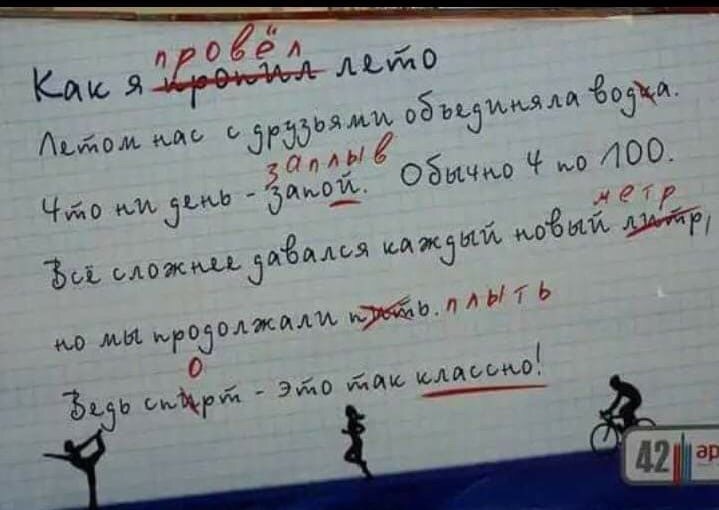 провёл
Как я пропил лето
Летом нас с друзьями объединяла водка.
заплыв
Что ни день - запой. Обычно 4 по 100.
метр
Всё сложнее давался каждый новый литр,
но мы продолжали пить. плыть
о
Ведь спирт - это так классно!
42 ар